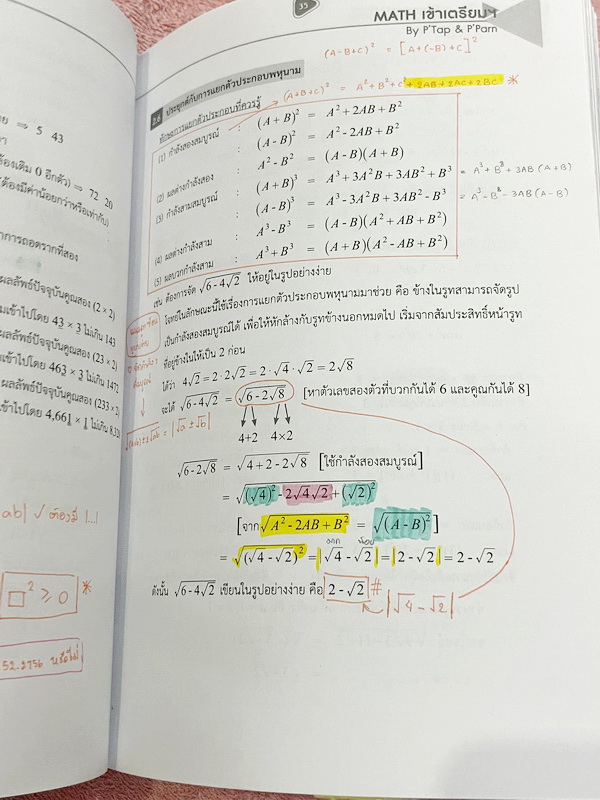 35
MATH เข้าเตรียมฯ
By P'Tap & P'Parn
(A-B+C)² = [A+(-B)+C]²
2.6 ประยุกต์กับการแยกตัวประกอบพหุนาม
(A+B+C)² = A²+B²+C²+2AB+2AC+2BC *
ลักษณะการแยกตัวประกอบที่ควรรู้
(1) กำลังสองสมบูรณ์ : (A + B)² = A² + 2AB + B²
(A - B)² = A² - 2AB + B²
(2) ผลต่างกำลังสอง : A² - B² = (A - B)(A + B)
(3) กำลังสามสมบูรณ์ : (A + B)³ = A³ + 3A²B + 3AB² + B³ = A³+B³+3AB(A+B)
(A - B)³ = A³ - 3A²B + 3AB² - B³ = A³-B³-3AB(A-B)
(4) ผลต่างกำลังสาม : A³ - B³ = (A - B)(A² + AB + B²)
(5) ผลบวกกำลังสาม : A³ + B³ = (A + B)(A² - AB + B²)
เช่น ต้องการจัด √(6 - 4√2) ให้อยู่ในรูปอย่างง่าย
โจทย์ในลักษณะนี้ใช้เรื่องการแยกตัวประกอบพหุนามมาช่วย คือ ข้างในรูทสามารถจัดรูป
เป็นกำลังสองสมบูรณ์ได้ เพื่อให้หักล้างกับรูทข้างนอกหมดไป เริ่มจากสัมประสิทธิ์หน้ารูท
ที่อยู่ข้างในให้เป็น 2 ก่อน
ได้ว่า 4√2 = 2 · 2√2 = 2 · √4 · √2 = 2√8
จะได้ √(6 - 4√2) = √(6 - 2√8) [หาตัวเลขสองตัวที่บวกกันได้ 6 และคูณกันได้ 8]
= |√a ± √b|
4+2 4×2
√(6 - 2√8) = √(4 + 2 - 2√8) [ใช้กำลังสองสมบูรณ์]
= √((√4)² - 2√4√2 + (√2)²)
[จาก √(A² - 2AB + B²) = √((A - B)²)]
มาก น้อย
= √((√4 - √2)²) = |√4 - √2| = |2 - √2| = 2 - √2
ดังนั้น √(6 - 4√2) เขียนในรูปอย่างง่าย คือ 2 - √2 #
|√4 - √2|
⇒ 5 43
้องเดิม 0 อีกตัว) ⇒ 72 20
ต้องมีค่าน้อยกว่าหรือเท่ากับ)
าการถอดรากที่สอง
ผลลัพธ์ปัจจุบันคูณสอง (2 × 2)
มเข้าไปโดย 43 × 3 ไม่เกิน 143
ผลลัพธ์ปัจจุบันคูณสอง (23 × 2)
เข้าไปโดย 463 × 3 ไม่เกิน 1472
ผลลัพธ์ปัจจุบันคูณสอง (233 × 2)
เข้าไปโดย 4,661 × 1 ไม่เกิน 8,328
ab| √ ต้องมี |...|
□² ≥ 0 *
52.2756